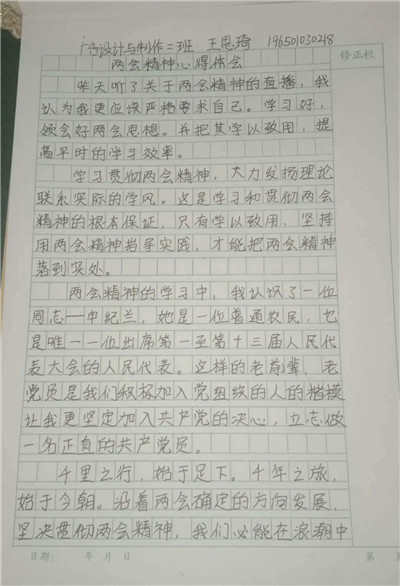 广告设计与制作二班 王恩琦 196501030248
两会精神心得体会
修正栏
昨天听了关于两会精神的直播，我
认为我更应该严格要求自己。学习好，
领会好两会思想。并把其学以致用，提
高平时的学习效率。
学习贯彻两会精神，大力发扬理论
联系实际的学风。这是学习和贯彻两会
精神的根本保证，只有学以致用，坚持
用两会精神指导实践，才能把两会精神
落到实处。
两会精神的学习中，我认识了一位
同志——申纪兰，她是一位普通农民，也
是唯一一位出席第一至第十三届人民代
表大会的人民代表。这样的老前辈，老
党员是我们积极加入党组织的人的楷模
让我更坚定加入共产党的决心，立志做
一名正直的共产党员。
千里之行，始于足下。千年之旅，
始于今朝。沿着两会确定的方向发展，
坚决贯彻两会精神，我们必能在浪潮中
日期： 年 月 日
第 页